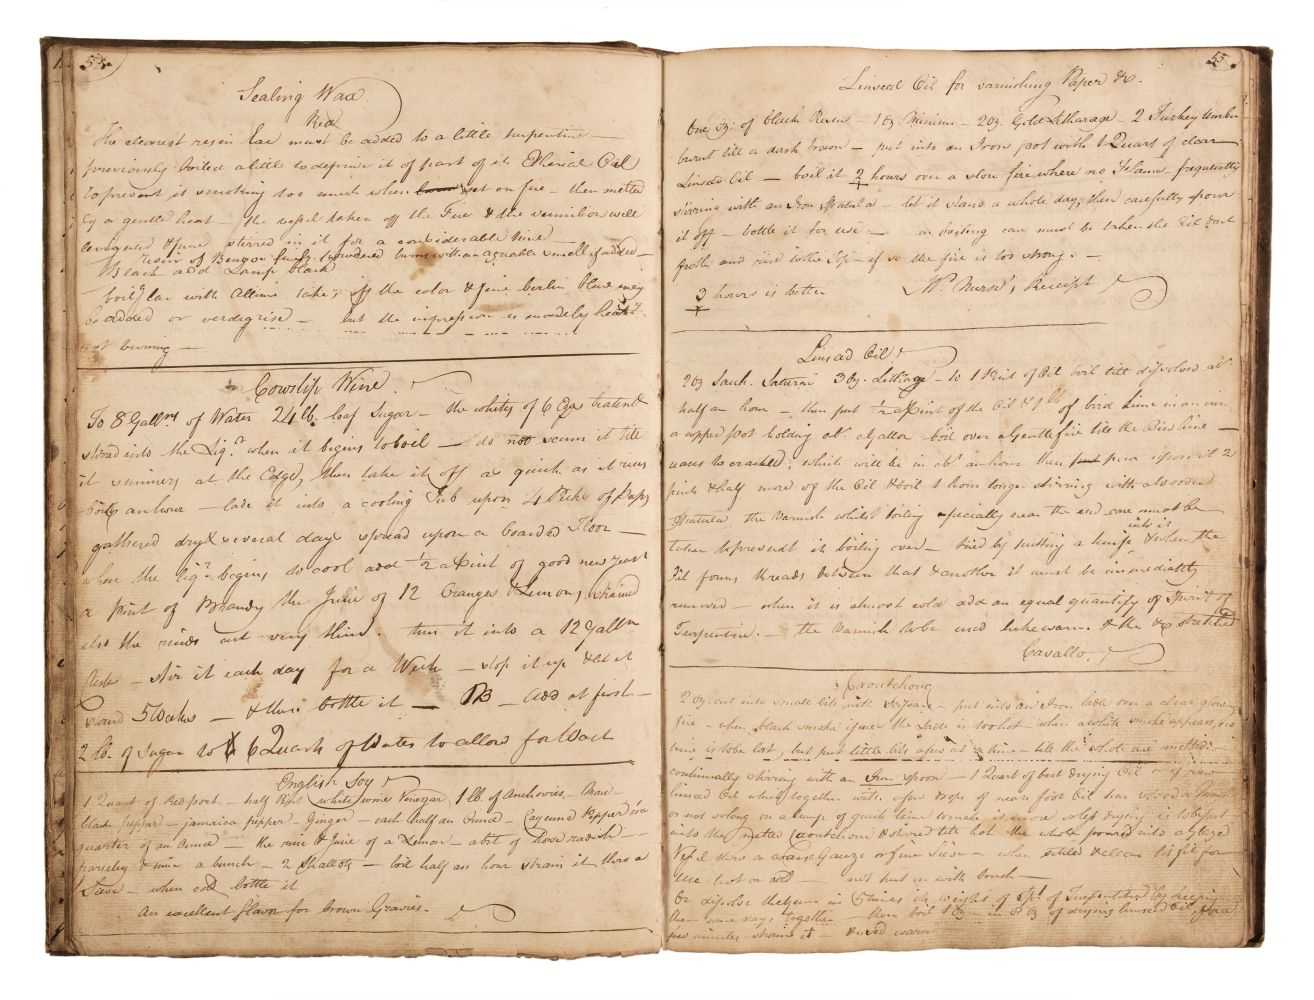 54
Sealing Wax
Red
The clearest resin Lac must be added to a little turpentine —
previously boiled a little to deprive it of part of its Etherial Oil
to prevent it smoking too much when set on fire — then melted
by a gentle heat — the vessel taken off the Fire & the vermilion well
levigated & fine stirred in it for a considerable time —
resin of Bengoa finely powdered burns with an agreeable smell if added —
Black add Lamp black
boil lac with Alkine take off the color & fine berlin blue may
be added or verdegrise — but the impression is made by heat
not burning —
Cowslip Wine
To 8 Galls of Water 24 lb. loaf Sugar — the whites of 6 Eggs beaten
stired into the Liqr. when it begins to boil — do not scum it till
it simmers at the Edge, then take it off as quick as it runs
boil an hour — lade it into a cooling Tub upon 4 Pecks of Peeps
gathered dry & several days spread upon a boarded Floor —
when the Liqr. begins to cool add 1/2 a Pint of good new yeast
a pint of Brandy the Juice of 12 Oranges & Lemons, strained
also the rinds cut very thin. turn it into a 12 Galln
Cask — stir it each day for a Week — stop it up & let it
stand 5 Weeks — & then bottle it — NB — add at first —
2 lb. of Sugar to 6 Quarts of Water to allow for Wast
English Soy
1 Quart of Red port — half Pint white wine Vinegar 1 lb. of Anchovies — Mace —
black pepper — jamaica pepper — Ginger — each half an Ounce — Cayenne Pepper 1/4
quarter of an Ounce — the rine & Juice of a Lemon — a bit of Horse raddish —
parsley & mint a bunch — 2 Shallots — boil half an hour strain it thro a
Sieve — when cold bottle it
An excellent flavor for brown Gravies.
55
Linseed Oil for varnishing Paper &c.
One oz. of black Rosin — 1 oz Minium — 2 oz. Gold Litharage — 2 Turkey Umber
burnt till a dark brown — put into an Iron pot with 1 Quart of clear
Linseed Oil — boil it 2 hours over a slow fire where no Flame frequently
stirring with an Iron Spatula — let it stand a whole day, then carefully pour
it off — bottle it for use — in boiling care must be taken the Oil dont
froth and rise to the Top — if so the fire is too strong. —
3 hours is better Mr. Nurse's Receipt
Linseed Oil
2 oz Sacch. Saturni 3 oz. Litharge to 1 Pint of Oil boil till dissolved abt
half an hour — then put 1/2 a Pint of the Oil & 1 lb of bird Lime in an iron
or copper pot holding abt. a Gallon — boil over a Gentle fire till the Bird lime —
ceases to crackle, which will be in abt. an hour then pour upon it 2
pints & half more of the Oil & boil 1 hour longer stirring with a wooden
Spatula the Varnish whilst boiling especially near the end care must be
taken to prevent it boiling over — tried by putting a knife into it & when the
Oil forms threads between that & another it must be immediately
removed — when it is almost cold add an equal quantity of Spirit of
Turpentine. — the Varnish to be used lukewarm & the &c stretched
Cavallo.
Caoutchouc
2 oz, cut into small bits with Scissars — put into an Iron ladle over a clear glowing
fire — when black smoke issues the Ladle is too hot — when a white smoke appears, no
time is to be lost, but put little bits a few at a time — till the whole are melted —
continually stirring with an Iron spoon — 1 Quart of best drying Oil or of raw
linseed Oil which together with a few drops of neats foot Oil has stood a
or not so long on a lump of quick lime to make it more or less drying is to be put
into the melted Caoutchouc & stirred till hot the whole poured into a glazed
Vessel thro a coarse Gauze or fine Sieve — when settled & clear is fit for
use hot or cold — not put on with brush —
Or dissolve the Gum in 5 times its weight of Spt. of Turpentine by keeping
them some days together — then boil 1 oz — in 8 oz of drying linseed Oil for a
few minutes strain it — & used warm